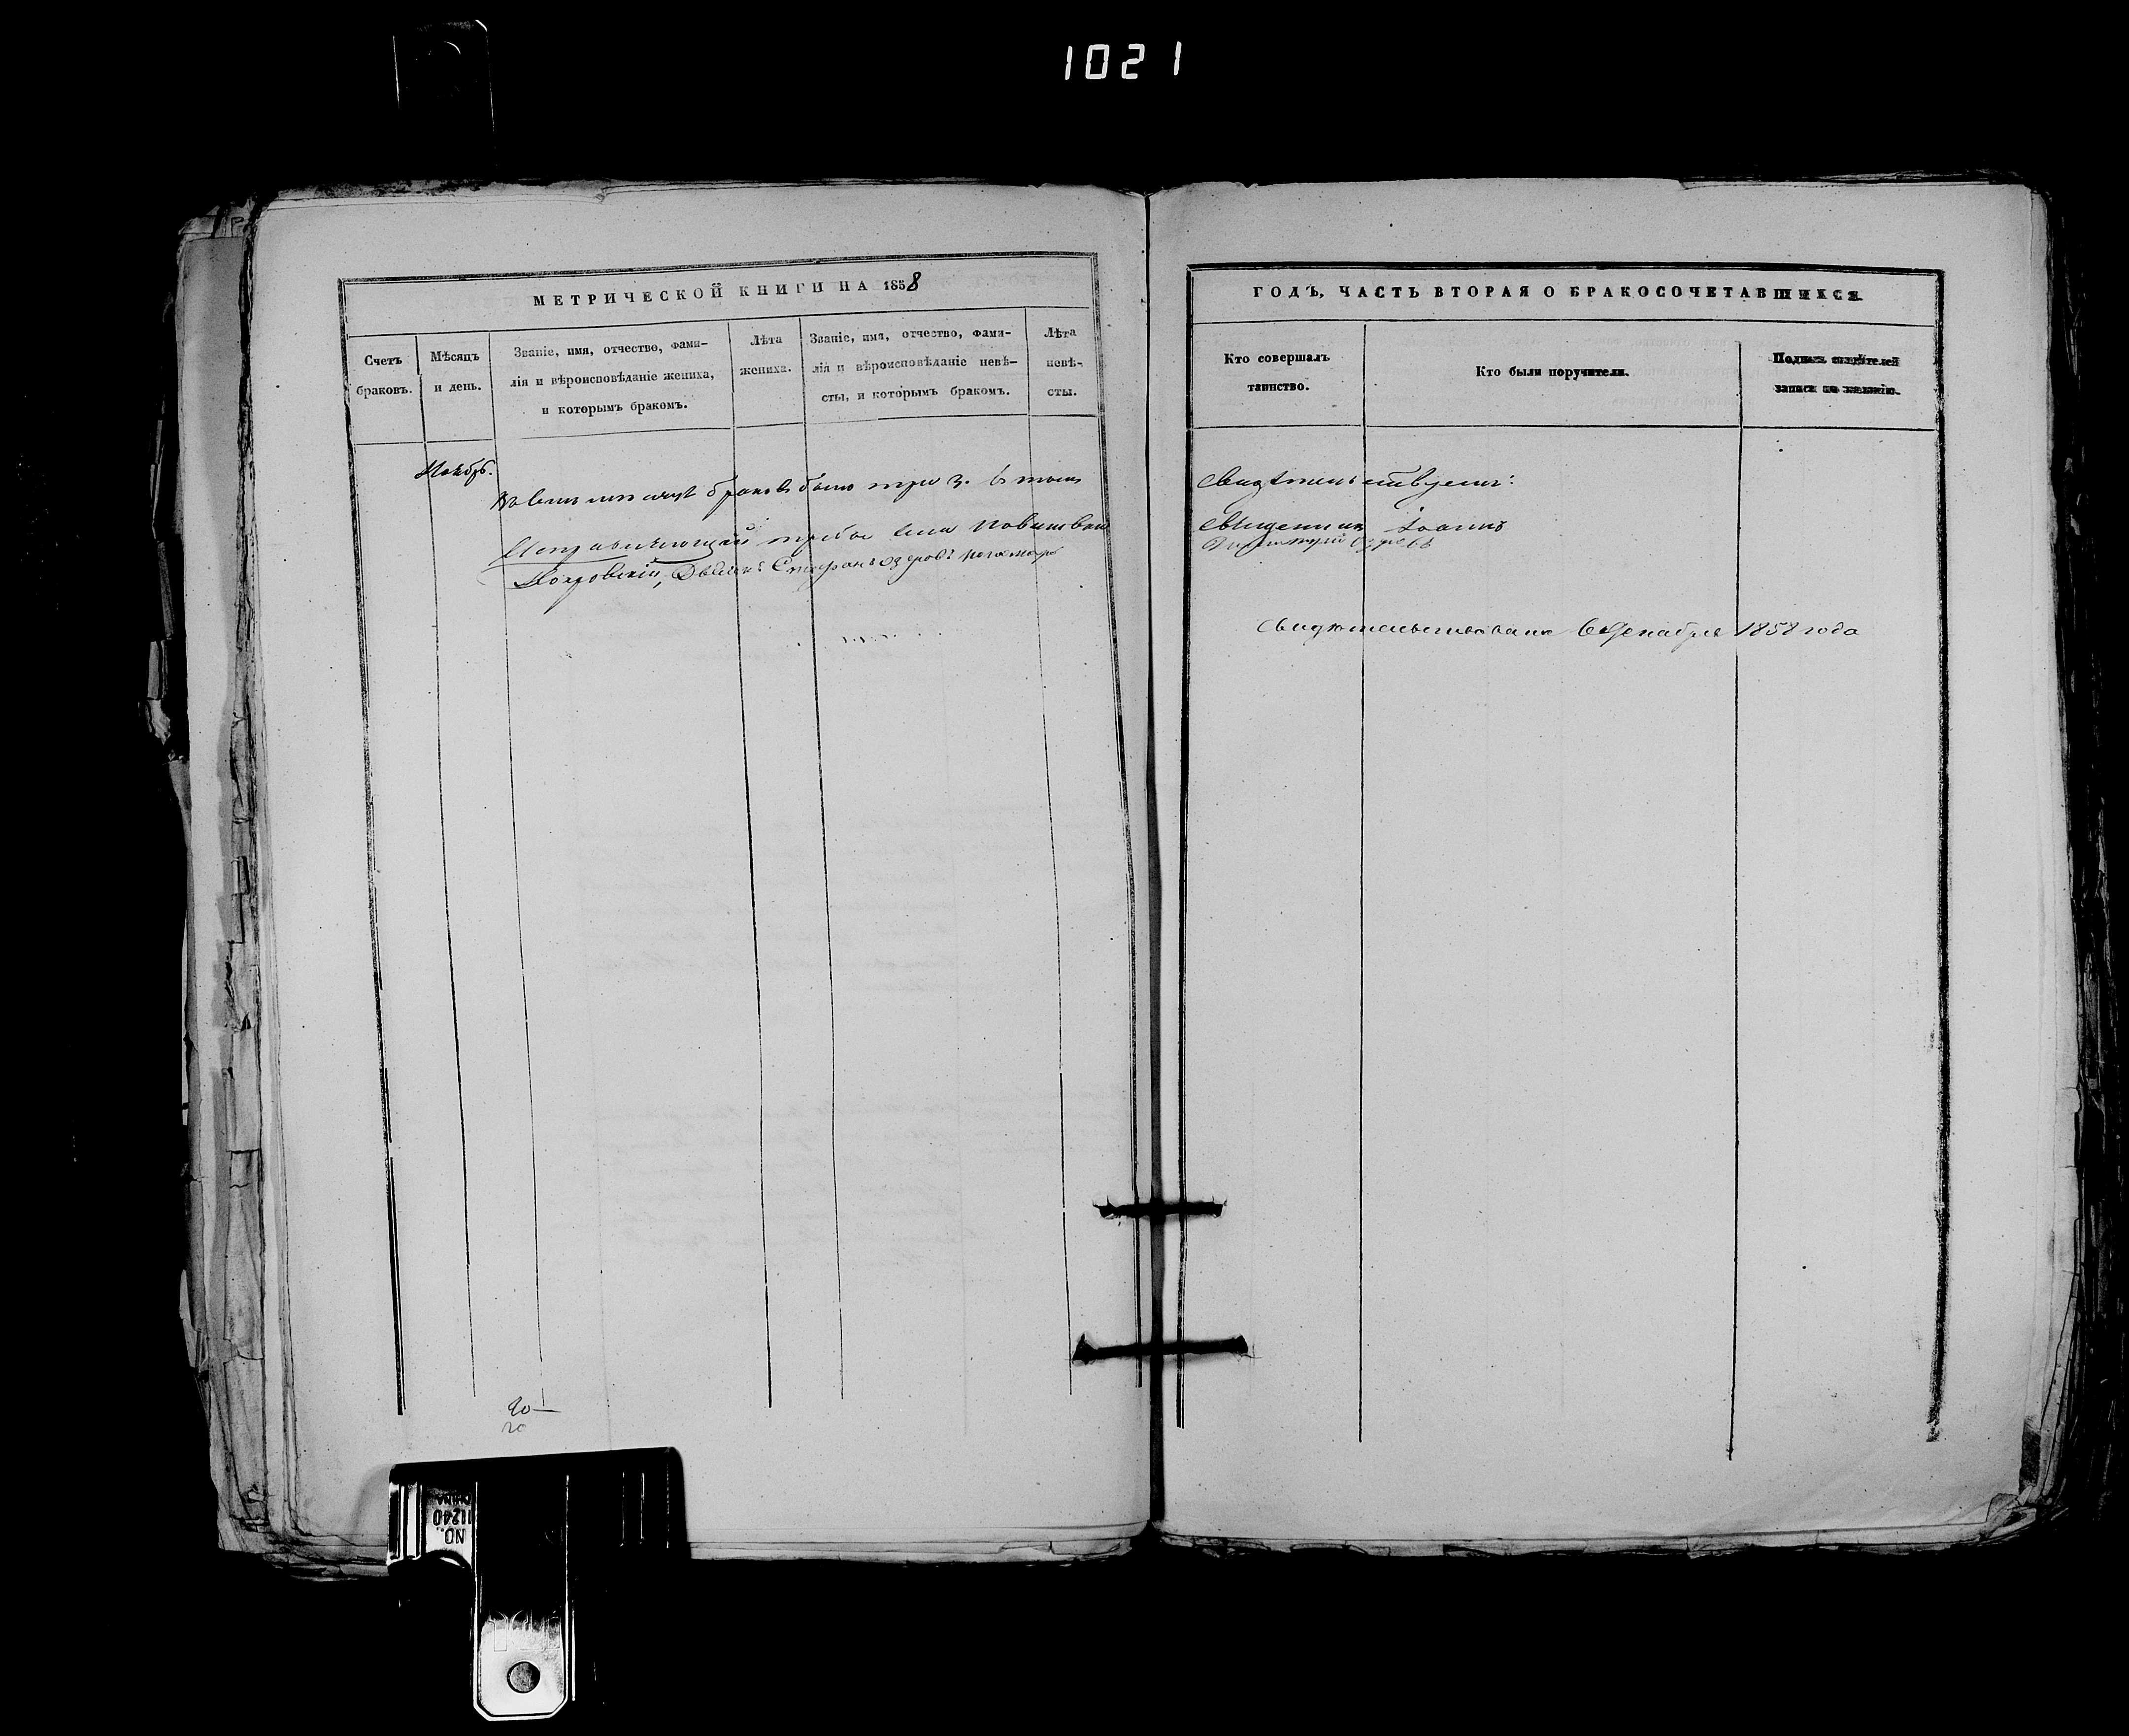 1021
МЕТРИЧЕСКОЙ КНИГИ НА 1858
Счетъ браковъ.
Мѣсяцъ и день.
Званіе, имя, отчество, фами-
лія и вѣроисповѣданіе жениха,
и которымъ бракомъ.
Лѣта
жениха.
Званіе, имя, отчество, фами-
лія и вѣроисповѣданіе невѣ-
сты, и которымъ бракомъ.
Лѣта
невѣ-
сты.
Ноябрь.
браковъ было три 3. въ томъ
Покровскій, Дьяконъ Стефанъ
20
20
ГОДЪ, ЧАСТЬ ВТОРАЯ О БРАКОСОЧЕТАВШИХСЯ
Кто совершалъ
таинство.
Кто были поручители.
Подпись свидѣтелей
записи по желанію.
Свидѣтельствуемъ:
Священникъ Іоаннъ
Свидѣтельствована 6 Декабря 1858 года
NO.
11240